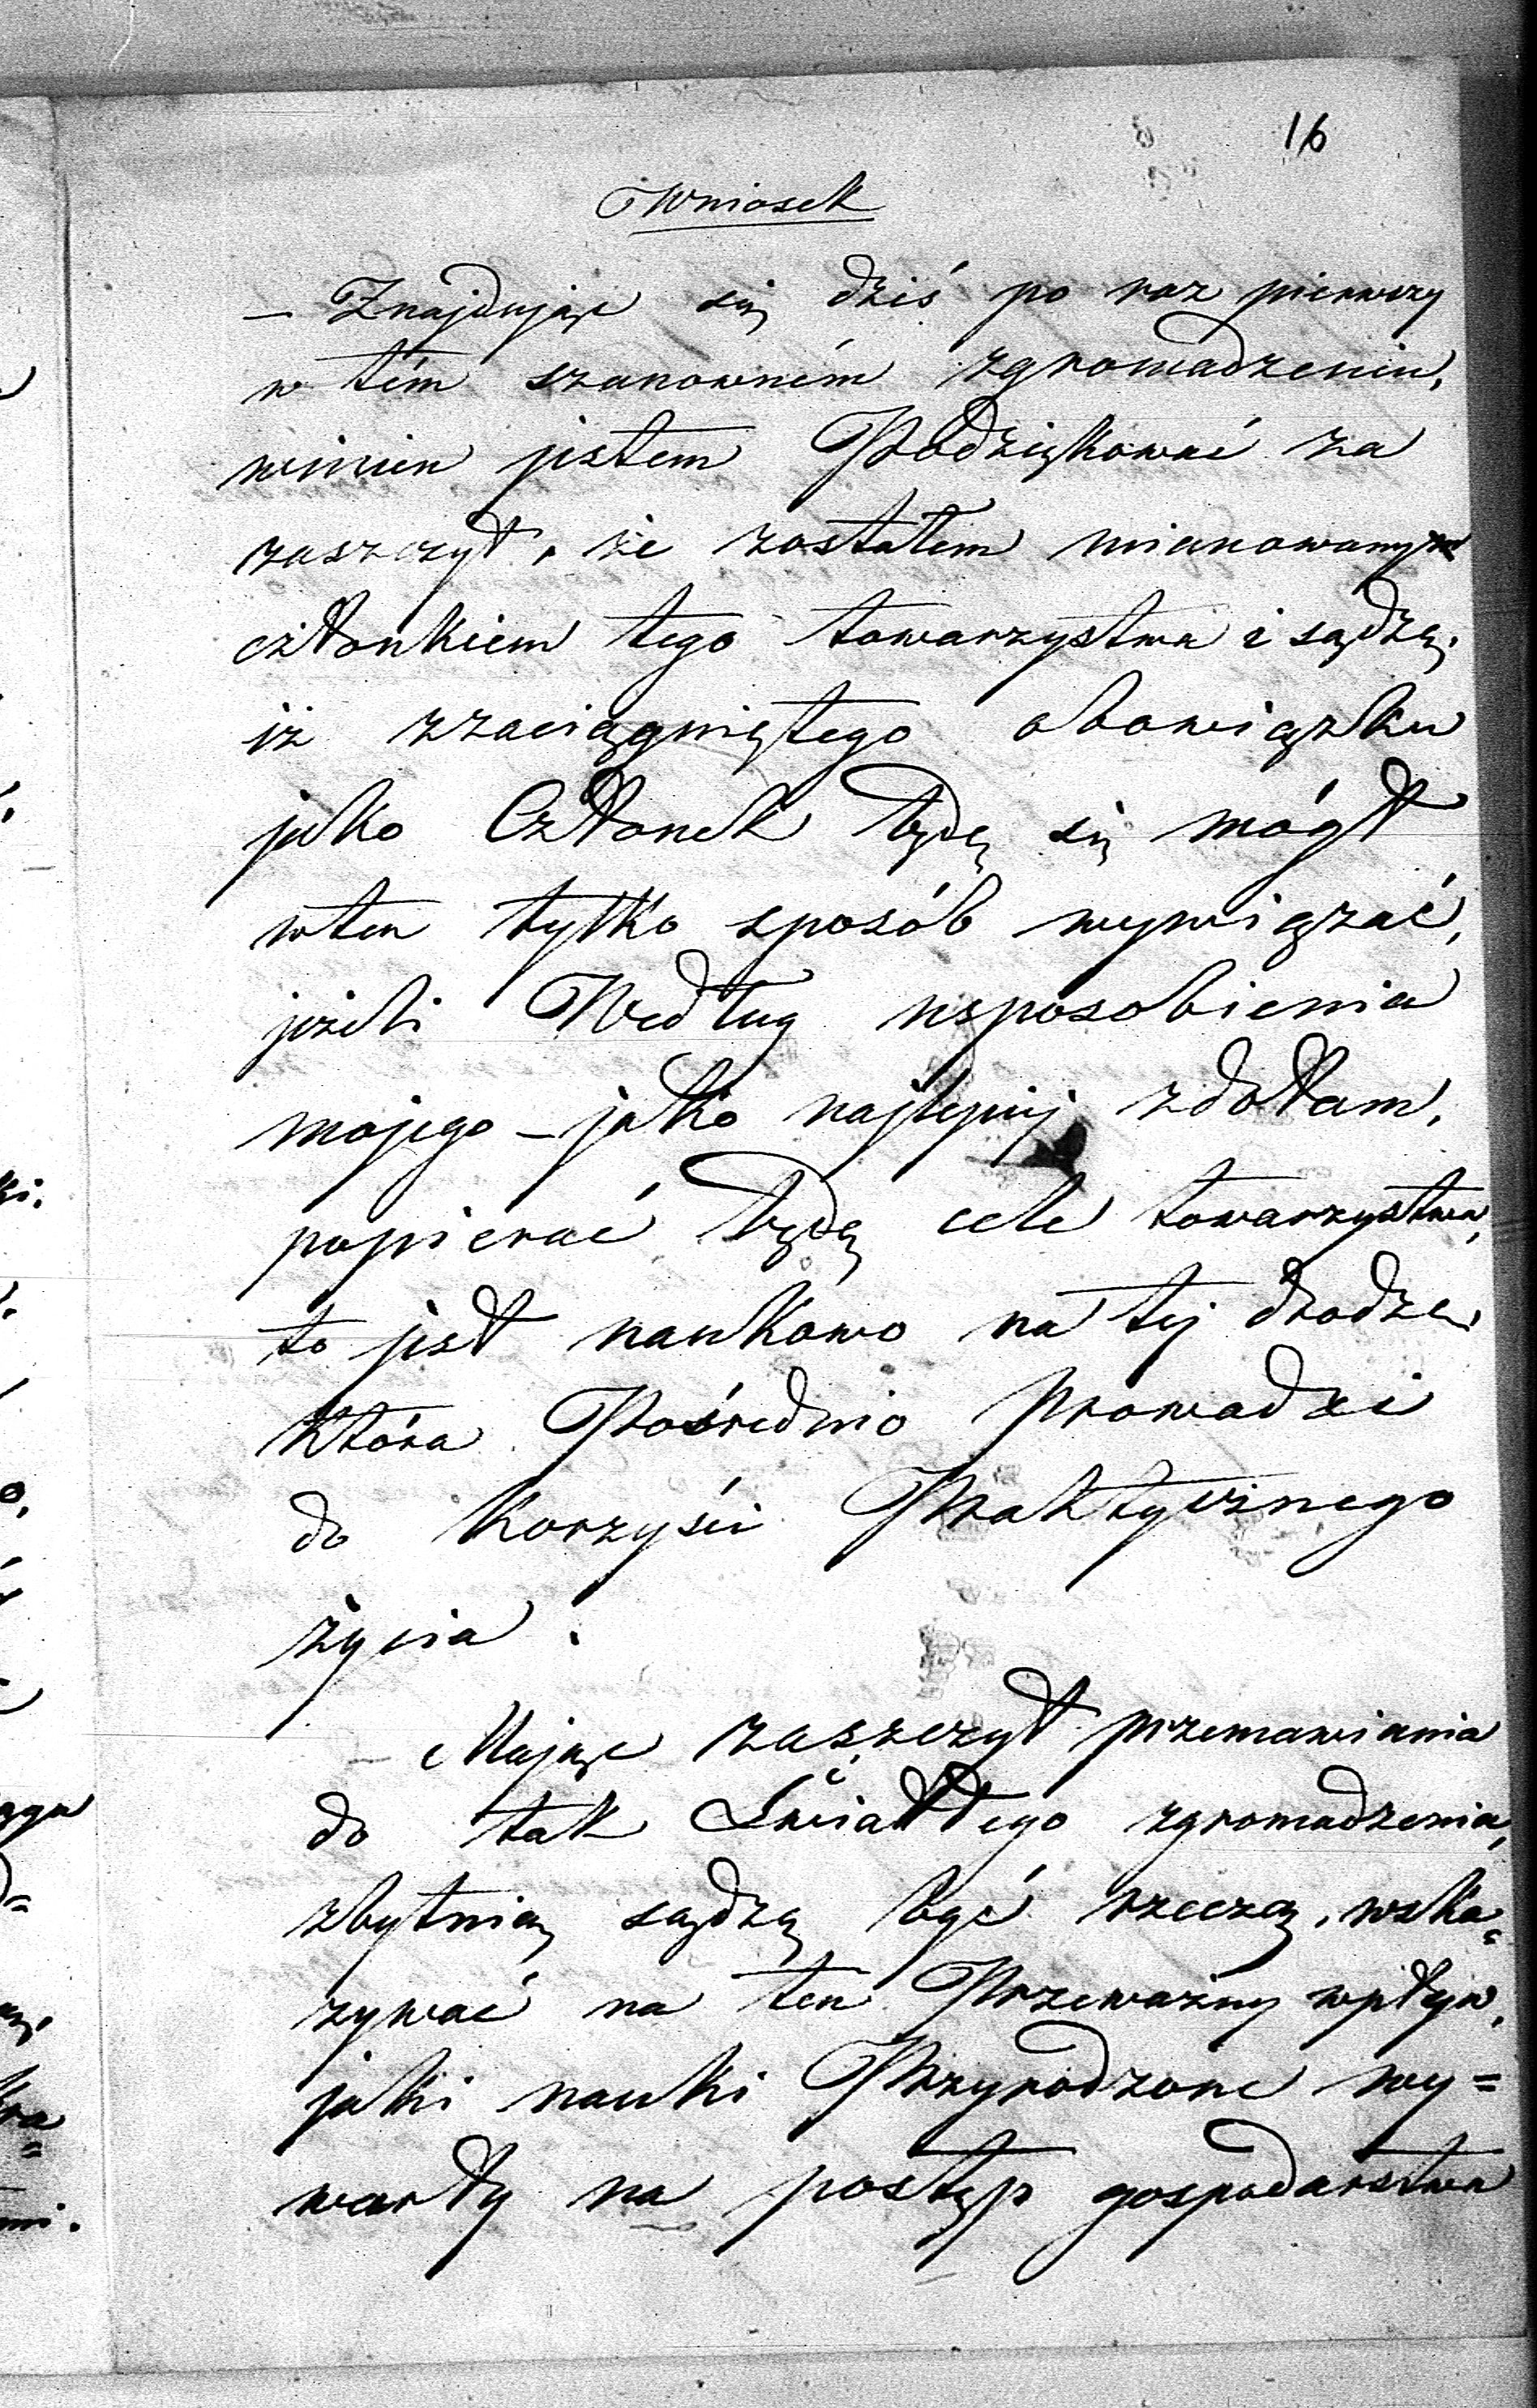 16
Wniosek
– Znajdując się dziś po raz pierwszy
w tém szanowném zgromadzeniu,
winien jestem Podziękować za
zaszczyt, że zostałem mianowanym
członkiem tego towarzystwa i sądzę,
iż zzaciągniętego obowiązku
jako Członek będę się mógł
wten tylko sposób wywiązać,
jeżeli Według usposobienia
mojego – jako najlepiej zdołam,
popierać będę cele towarzystwa,
to jest naukowo na tej drodze,
która Pośrednio prowadzi
do korzyści Praktycznego
życia.
– Mając zaszczyt przemawiania
do tak Światłego zgromadzenia,
zbytnią sądzę być rzeczą, wska=
zywać na ten Przeważny wpływ,
jaki nauki Przyrodzone wy=
warły na postęp gospodarstwa